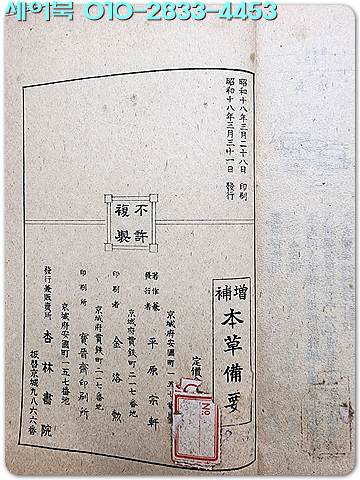 세이북 010-2833-4453
昭和十八年三月二十八日 印刷
昭和十八年三月三十一日 發行
不許
複製
增補 本草備要
定價
京城府安國町一五
著作兼
發行者 平原宗軒
京城府貫鉄町二一七番地
印刷者 金洛勲
京城府貫鉄町二一七番地
印刷所 寶晉齋印刷所
京城府安國町一五七番地
發行兼販賣所 杏林書院
振替京城九八六六番
No